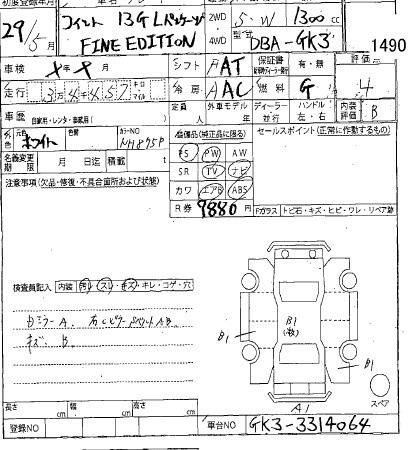 初度登録年月
29/5月
13G Lパッケージ
FINE EDITION
2WD
4WD
S・W
1300cc
型式
DBA-GK3
1490
車検
年 月
シフト
FAT
保証書
有・無
評価
4
走行
34457
キロ
マイル
冷房
AAC
燃料
G
内装評価
B
車歴
自家用・レンタ・事業用( )
定員
人
外車モデル
年
ディーラー
並行
ハンドル
左・右
外色
元色
ホワイト
色替
カラーNO
NH875P
装備品(純正品に限る)
セールスポイント(正常に作動するもの)
PS PW AW
SR TV ナビ
カワ エアB ABS
名義変更期限
月 日迄
積載
t
R券
9880円
Fガラス
トビ石・キズ・ヒビ・ワレ・リペア跡
注意事項(欠品・修復・不具合箇所および状態)
検査員記入
内装
・スレ・キズ・キレ・コゲ・穴
A. 右Cピラー AB.
キズ B.
B1
B1
B1
A1
スペア
長さ
cm
幅
cm
高さ
cm
登録NO
車台NO
GK3-3314064